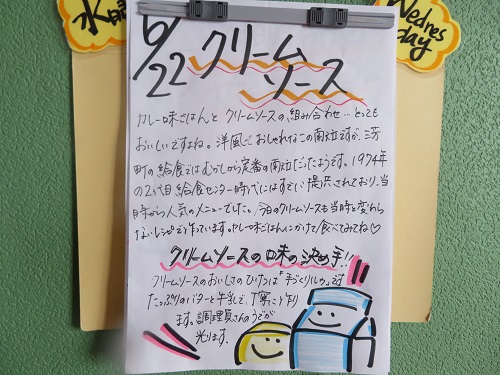 水曜
Wednes
day
6/22
クリーム
ソース
カレー味ごはんと クリームソースの組み合わせ…とっても
おいしいですよね。洋風でおしゃれなこの献立ですが、三芳
町の給食ではむかしから定番の献立だったようです。1974年
の2代目給食センター時代にはすでに提供されており、当
時から人気のメニューでした。今日のクリームソースも当時と変わら
ないレシピで作っています。カレー味ごはんにかけて食べてみてね♡
クリームソースの味の決め手!!
クリームソースのおいしさのひけつは「手づくりルウ」です
たっぷりのバターと牛乳で、丁寧に作り
ます。調理員さんのうでが
光ります。